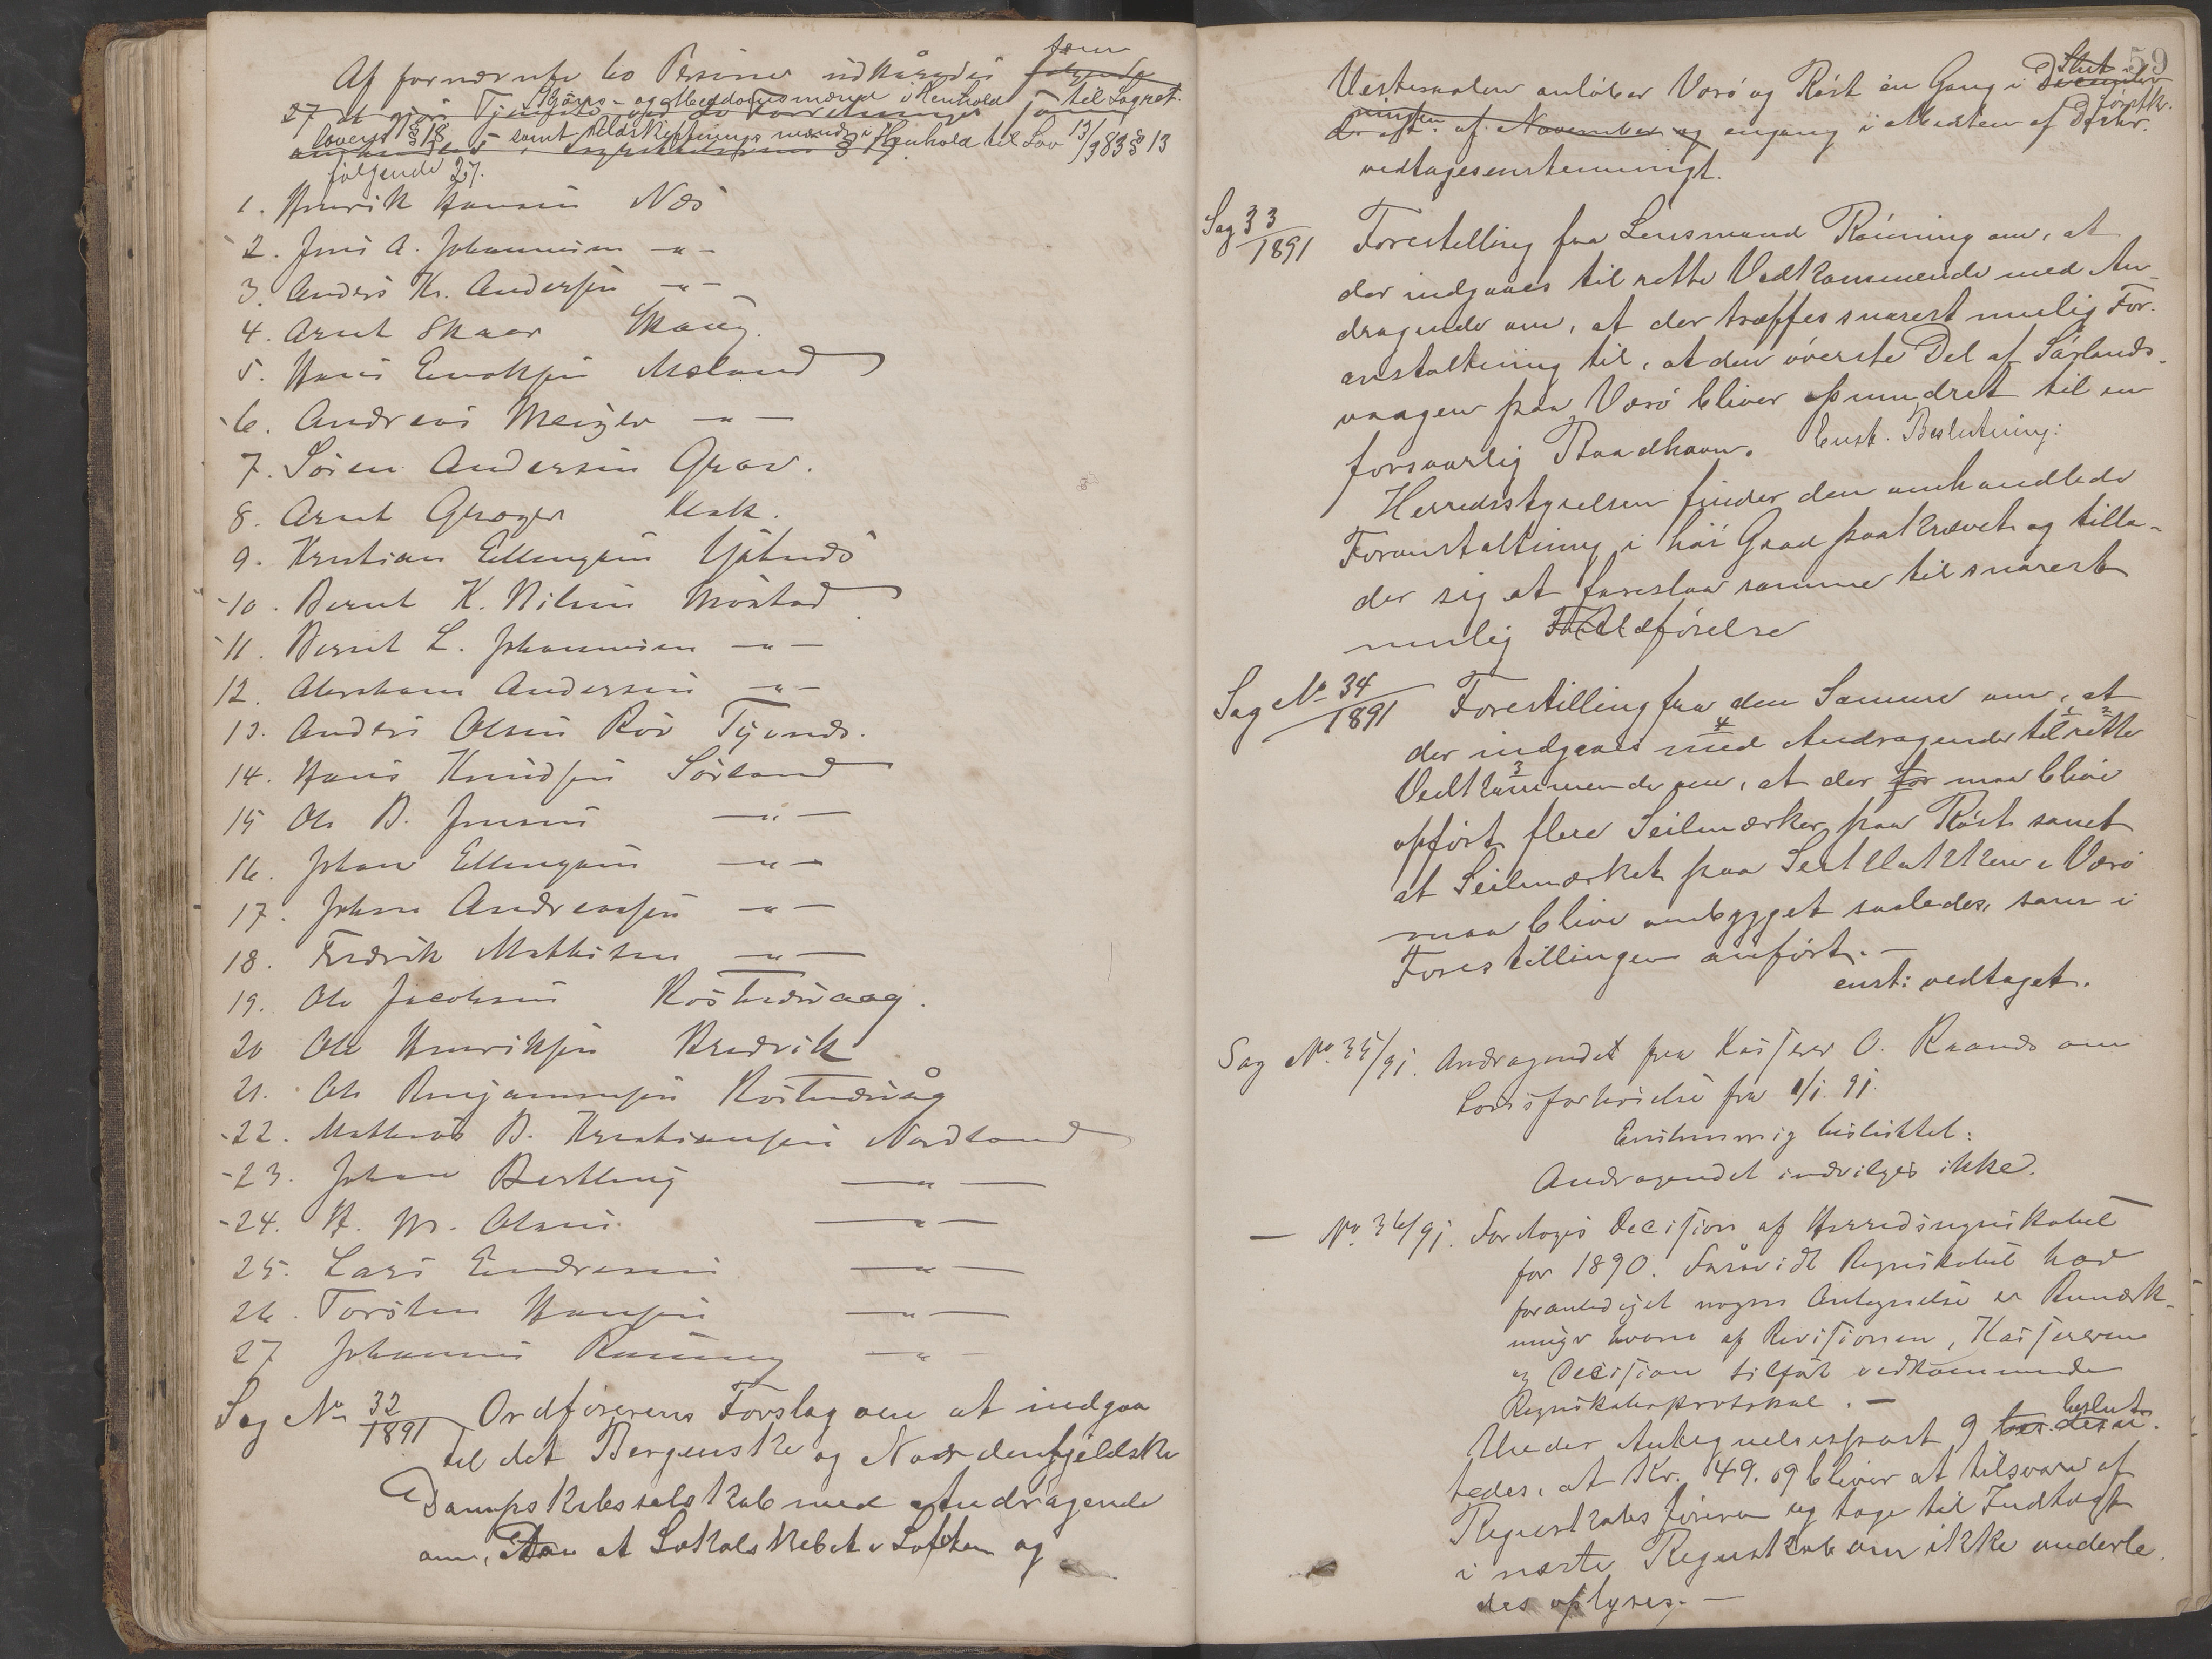 Af fornævnte 60 Personer udkåredes følgende som
27 at gjøre Tjeneste ved de Forretninger som Skjøns- og Meddomsmænd i Henhold til Lagret.
lovens § 18 - samt Udskiftningsmænd i Henhold til Lov 13/3 83 § 13
følgende 27.
1. Henrik Hansen Næs
2. Jens A. Johannesen -"-
3. Anders Kr. Andersen -"-
4. Arnt Skaar Skaug.
5. Hans Enoksen Mæland
6. Andreas Meizler -"-
7. Sören Andersen Grav.
8. Arnt Grøger
9. Kristian Ellingsen
10. Bernt K. Nilsen Mostad
11. Bernt L. Johannesen -"-
12. Abraham Andersen -"-
13. Anders Olsen Röv Tyvnæs.
14. Hans Knudsen Sörland
15 Ole B. Jensen -"-
16. Johan Ellingsen -"-
17. Johan Andreassen -"-
18. Fredrik Mathisen -"-
19. Ole Jacobsen Röstnæsvaag.
20 Ole Henriksen Kredvik
21. Ole Benjaminsen Röstnæsvåg
22. Mathias B. Kristiansen Nordland
23. Johan Berthling -"-
24. H. M. Olsen -"-
25. Lars Endresen -"-
26. Torsten Hansen -"-
27 Johannes Rönning -"-
Sag No 32/1891 Ordförerens Forslag om at indgaa
til det Bergenske og Nordenfjeldske
Dampskibsselskab med Andragende
om, at Lokalskibet i Lofoten og
59
Vesteraalen anlöber Værö og Röst én Gang i Slut
ningen af November og engang i Midten af Decbr.
vedtages enstemmigt.
Sag 33/1891 Forestilling fra Lensmand Rönning om, at
der indgaaes til rette Vedkommende med An-
dragende om, at der træffes snarest mulig For-
anstaltning til, at den överste Del af Sörlands-
vaagen paa Værö bliver opmudret til en
forsvarlig Baadhavn. Enst. Beslutning:
Herredsstyrelsen finder den omhandlede
Foranstaltning i höi Grad paakrævet og tilla-
der sig at foreslaa samme til snarest
mulig Udförelse
Sag No 34/1891 Forestilling fra den Samme om, at
der indgaaes med 4 Andragende til 1 rette 2
Vedkommende 3 om, at der for maa blive
opfört flere Seilmærker paa Röst samt
at Seilmærket paa i Værö
maa blive ombygget saaledes, som i
Forestillingen anfört. -
enst: vedtaget.
Sag No. 35/91. Andragendet fra Kasserer O. Raanes om
Lönsforhöielse fra 1/1. 91.
Enstemmig besluttet:
Andragendet indvilges ikke.
- No. 36/91. Foretoges Decision af Herredsregnskabet
for 1890. Forsaavidt Regnskabet har
foranlediget nogen Antegnelse er Bemærk-
ninger herom af Revisionen, Kassereren
og Decision tilført vedkommende
Regnskabsprotokol. -
Under Antegnelsespost 9 beslut-
tedes, at Kr. 49.09 bliver at tilsvare af
Regnskabsföreren og tage til Indtægt
i næste Regnskab om ikke anderle
des oplyses. -